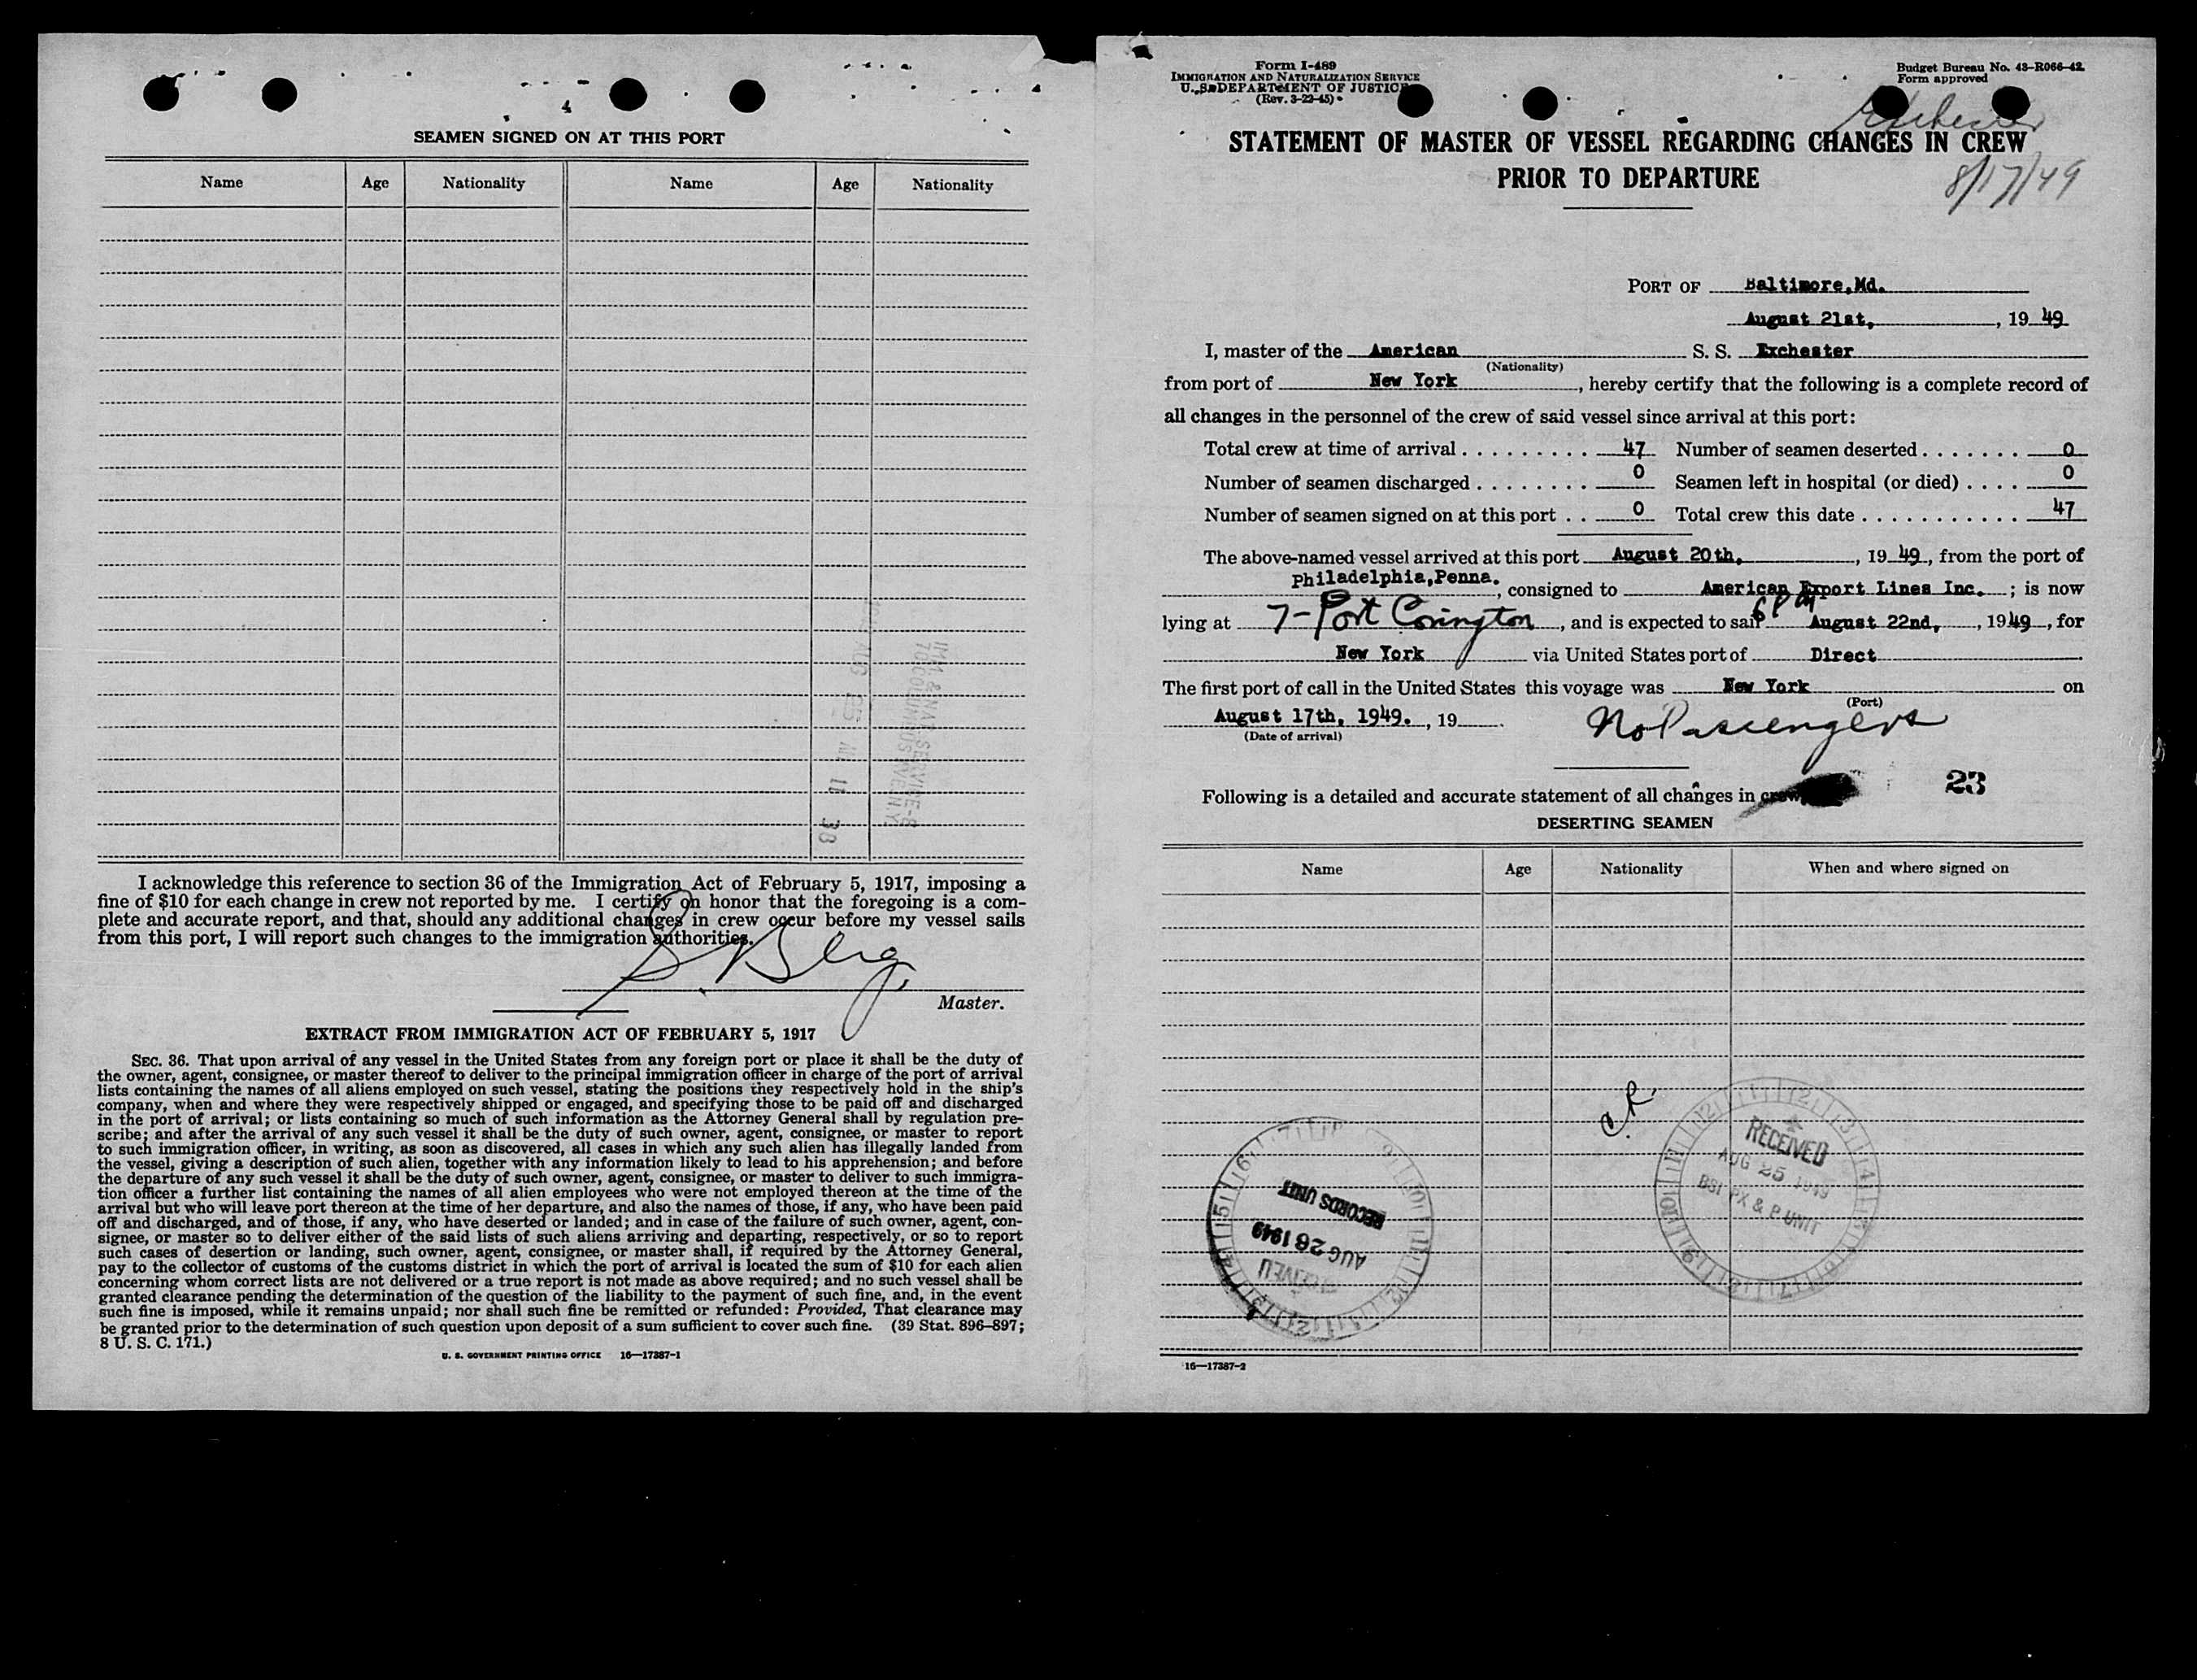 4
SEAMEN SIGNED ON AT THIS PORT
Name Age Nationality Name Age Nationality
I acknowledge this reference to section 36 of the Immigration Act of February 5, 1917, imposing a
fine of $10 for each change in crew not reported by me. I certify on honor that the foregoing is a com-
plete and accurate report, and that, should any additional changes in crew occur before my vessel sails
from this port, I will report such changes to the immigration authorities.
S. Berg
Master.
EXTRACT FROM IMMIGRATION ACT OF FEBRUARY 5, 1917
SEC. 36. That upon arrival of any vessel in the United States from any foreign port or place it shall be the duty of
the owner, agent, consignee, or master thereof to deliver to the principal immigration officer in charge of the port of arrival
lists containing the names of all aliens employed on such vessel, stating the positions they respectively hold in the ship's
company, when and where they were respectively shipped or engaged, and specifying those to be paid off and discharged
in the port of arrival; or lists containing so much of such information as the Attorney General shall by regulation pre-
scribe; and after the arrival of any such vessel it shall be the duty of such owner, agent, consignee, or master to report
to such immigration officer, in writing, as soon as discovered, all cases in which any such alien has illegally landed from
the vessel, giving a description of such alien, together with any information likely to lead to his apprehension; and before
the departure of any such vessel it shall be the duty of such owner, agent, consignee, or master to deliver to such immigra-
tion officer a further list containing the names of all alien employees who were not employed thereon at the time of the
arrival but who will leave port thereon at the time of her departure, and also the names of those, if any, who have been paid
off and discharged, and of those, if any, who have deserted or landed; and in case of the failure of such owner, agent, con-
signee, or master so to deliver either of the said lists of such aliens arriving and departing, respectively, or so to report
such cases of desertion or landing, such owner, agent, consignee, or master shall, if required by the Attorney General,
pay to the collector of customs of the customs district in which the port of arrival is located the sum of $10 for each alien
concerning whom correct lists are not delivered or a true report is not made as above required; and no such vessel shall be
granted clearance pending the determination of the question of the liability to the payment of such fine, and, in the event
such fine is imposed, while it remains unpaid; nor shall such fine be remitted or refunded: Provided, That clearance may
be granted prior to the determination of such question upon deposit of a sum sufficient to cover such fine. (39 Stat. 896–897;
8 U. S. C. 171.)
U. S. GOVERNMENT PRINTING OFFICE 16—17387-1
Form I-489
IMMIGRATION AND NATURALIZATION SERVICE
U. S. DEPARTMENT OF JUSTICE
(Rev. 3-22-45)
Budget Bureau No. 43-R066-42
Form approved
Exchester
STATEMENT OF MASTER OF VESSEL REGARDING CHANGES IN CREW
PRIOR TO DEPARTURE
8/17/49
PORT OF Baltimore,Md.
August 21st, , 19 49
I, master of the American S. S. Exchester
(Nationality)
from port of New York , hereby certify that the following is a complete record of
all changes in the personnel of the crew of said vessel since arrival at this port:
Total crew at time of arrival . . . . . . . . . 47 Number of seamen deserted . . . . . . . 0
Number of seamen discharged . . . . . . . . 0 Seamen left in hospital (or died) . . . . 0
Number of seamen signed on at this port . . 0 Total crew this date . . . . . . . . . . . . 47
The above-named vessel arrived at this port August 20th, , 19 49 , from the port of
Philadelphia,Penna. , consigned to American Export Lines Inc. ; is now
lying at 7-Port Covington , and is expected to sail 6 PM August 22nd, , 1949 , for
New York via United States port of Direct
The first port of call in the United States this voyage was New York on
(Port)
August 17th, 1949. , 19
(Date of arrival)
No Passengers
23
Following is a detailed and accurate statement of all changes in crew
DESERTING SEAMEN
Name Age Nationality When and where signed on
RECEIVED
AUG 25 1949
BSI PX & P UNIT
RECORDS UNIT
AUG 26 1949
RECEIVED
16—17387-2